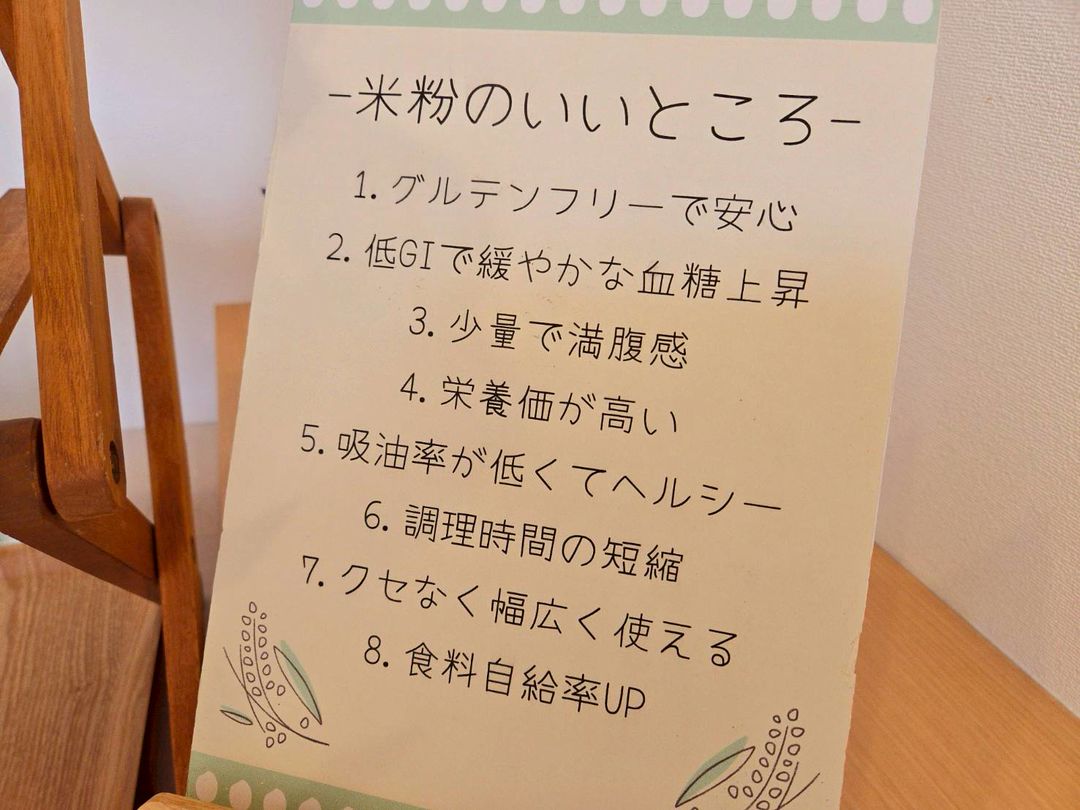 -米粉のいいところ-
1. グルテンフリーで安心
2. 低GIで緩やかな血糖上昇
3. 少量で満腹感
4. 栄養価が高い
5. 吸油率が低くてヘルシー
6. 調理時間の短縮
7. クセなく幅広く使える
8. 食料自給率UP